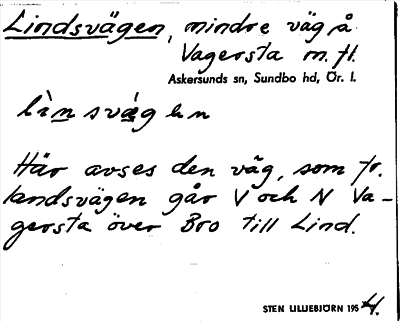 Lindsvägen, mindre väg å
Vagersta m. fl.
Askersunds sn, Sundbo hd, Ör. l.
lìnsvä́gɘn
Här avses den väg, som fr.
landsvägen går V och N Va-
gersta över Bro till Lind.
STEN LILLIEBJÖRN 1954.